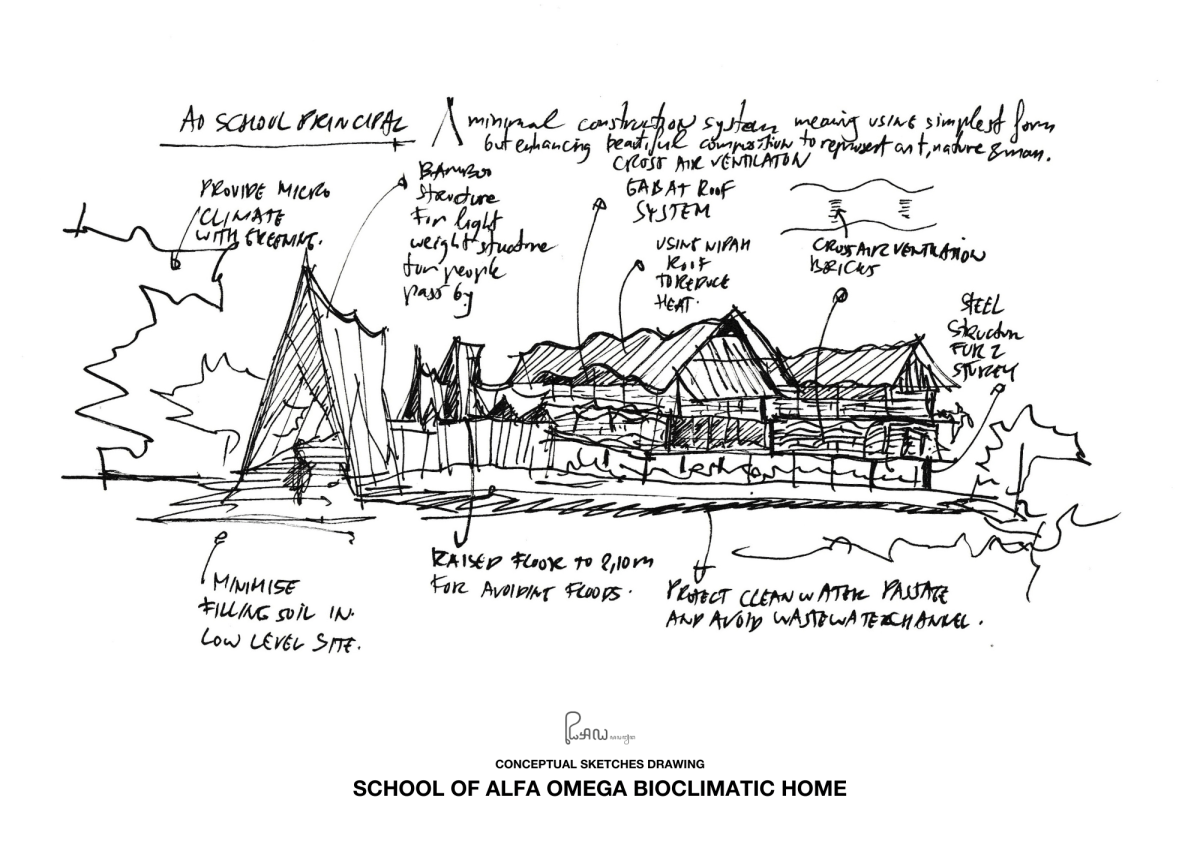 AO SCHOOL PRINCIPAL
A minimal construction system meaning using simplest form
but enhancing beautiful composition to represent art, nature & man.
PROVIDE MICRO
CLIMATE
WITH GREENING.
BAMBOO
structure
For light
weight structure
for people
pass by
CROSS AIR VENTILATON
ROOF
SYSTEM
USING NIPAH
ROOF
TO REDUCE
HEAT.
CROSS AIR VENTILATION
BRICKS
STEEL
STRUCTURE
FOR 2
STOREY
MINIMISE
FILLING SOIL IN
LOW LEVEL SITE.
RAISED FLOOR TO 2,10m
FOR AVOIDING FLOODS.
PROTECT CLEAN WATER PASSAGE
AND AVOID WASTEWATER CHANNEL.
CONCEPTUAL SKETCHES DRAWING
SCHOOL OF ALFA OMEGA BIOCLIMATIC HOME